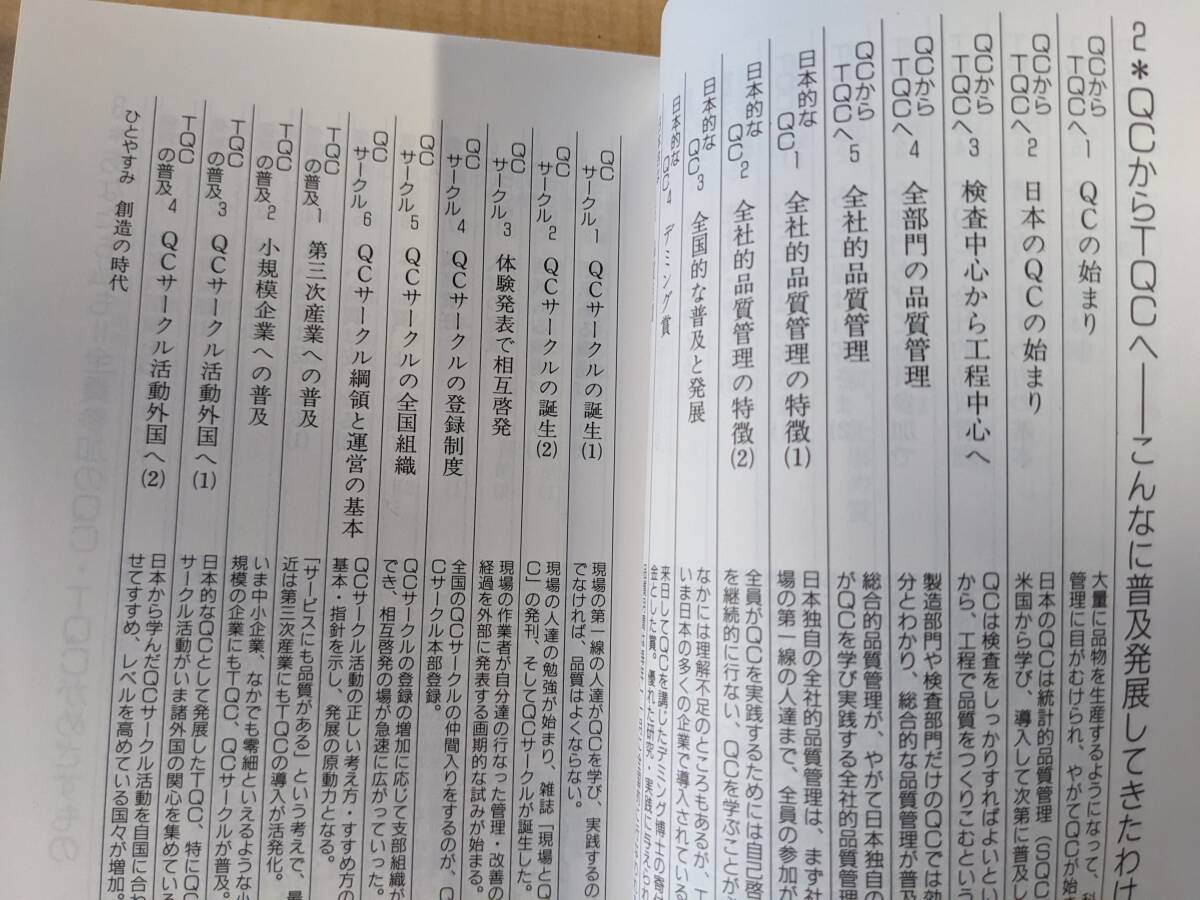 2＊QCからTQCへ――こんなに普及発展してきたわけ
QCから
TQCへ1 QCの始まり
大量に品物を生産するようになって、科
管理に目がむけられ、やがてQCが始ま
QCから
TQCへ2 日本のQCの始まり
日本のQCは統計的品質管理（SQC
米国から学び、導入して次第に普及し
QCから
TQCへ3 検査中心から工程中心へ
QCは検査をしっかりすればよいとい
から、工程で品質をつくりこむという
QCから
TQCへ4 全部門の品質管理
製造部門や検査部門だけのQCでは効
分とわかり、総合的な品質管理が普及
QCから
TQCへ5 全社的品質管理
総合的品質管理が、やがて日本独自の
がQCを学び実践する全社的品質管理
日本的な
QC1 全社的品質管理の特徴(1)
日本独自の全社的品質管理は、まず社
場の第一線の人達まで、全員の参加が
日本的な
QC2 全社的品質管理の特徴(2)
全員がQCを実践するためには自己啓
を継続的に行ない、QCを学ぶことが
日本的な
QC3 全国的な普及と発展
なかには理解不足のところもあるが、T
いま日本の多くの企業で導入されている
日本的な
QC4 デミング賞
来日してQCを講じたデミング博士の寄付
金とした賞。優れた研究・実践に与えられ
QC
サークル1 QCサークルの誕生(1)
現場の第一線の人達がQCを学び、実践するの
でなければ、品質はよくならない。
QC
サークル2 QCサークルの誕生(2)
現場の人達の勉強が始まり、雑誌「現場とQ
C」の発刊、そしてQCサークルが誕生した。
QC
サークル3 体験発表で相互啓発
現場の作業者が自分達の行なった管理・改善の
経過を外部に発表する画期的な試みが始まる。
QC
サークル4 QCサークルの登録制度
全国のQCサークルの仲間入りをするのが、Q
Cサークル本部登録。
QC
サークル5 QCサークルの全国組織
QCサークルの登録の増加に応じて支部組織が
でき、相互啓発の場が急速に広がっていった。
QC
サークル6 QCサークル綱領と運営の基本
QCサークル活動の正しい考え方・すすめ方の
基本・指針を示し、発展の原動力となる。
TQC
の普及1 第三次産業への普及
「サービスにも品質がある」という考えで、最
近は第三次産業にもTQCの導入が活発化。
TQC
の普及2 小規模企業への普及
いま中小企業、なかでも零細といえるような小
規模の企業にもTQC、QCサークルが普及。
TQC
の普及3 QCサークル活動外国へ(1)
日本的なQCとして発展したTQC、特にQC
サークル活動がいま諸外国の関心を集めている
TQC
の普及4 QCサークル活動外国へ(2)
日本から学んだQCサークル活動を自国に合わ
せてすすめ、レベルを高めている国々が増加。
ひとやすみ 創造の時代